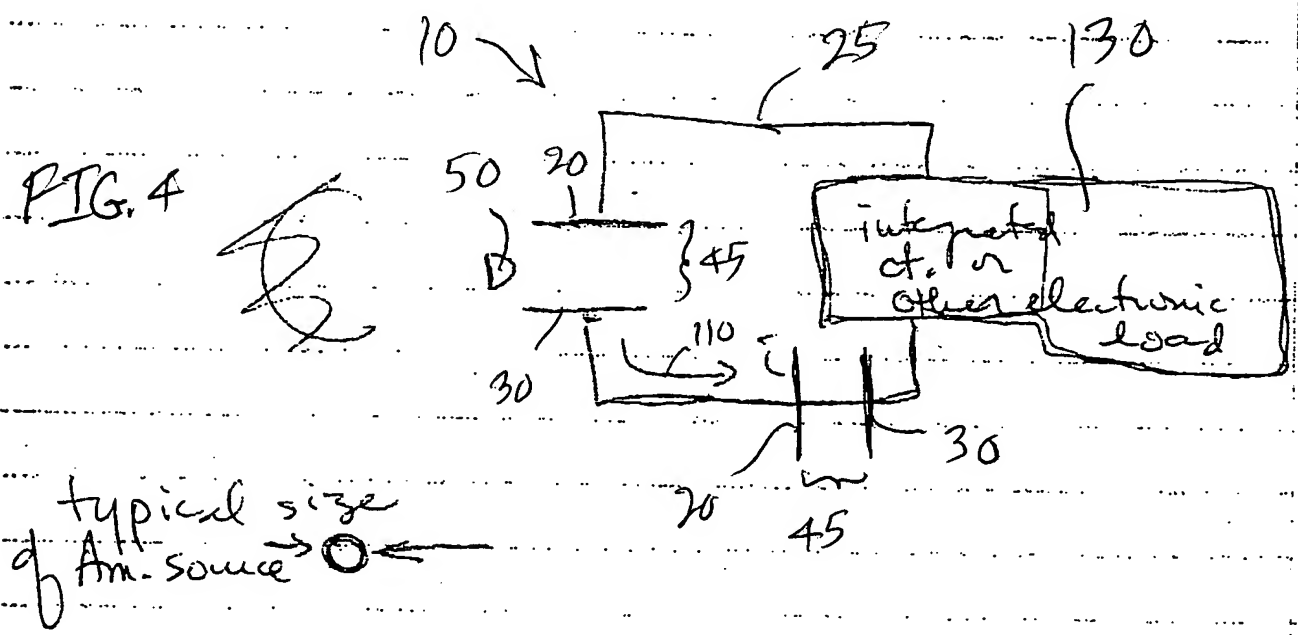 10
25
130
FIG. 4
50
20
integrated
ct. or
other electronic
load
45
110
i
30
20
30
45
typical size
of Am. source